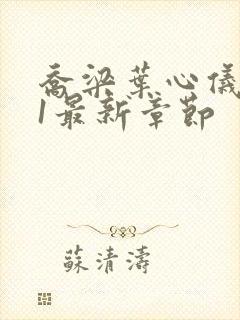 喬梁葉心儀
1最新章節
蘇清濤